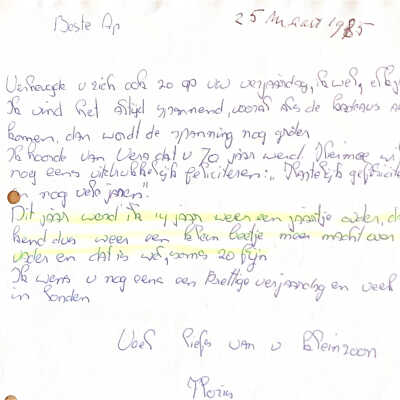 Beste Ap
25 Maart 1985
Verheugt u zich ook zo op uw verjaardag, ik wel, elk
Ik vind het altijd spannend, vooral als de kadeaus
komen, dan wordt de spanning nog groter
Ik hoorde van Vera dat u 70 jaar werd Hiermee wil
nog eens uitdrukkelijk feliciteren: "Hartelijk gefelicit
en nog vele jaren".
Dit jaar werd ik 14 jaar weer een jaartje ouder, d
kend dus weer een klein beetje meer macht over
vader en dat is wel, soms zo fijn
Ik wens u nog eens een Prettige verjaardag en veel
in Londen
Veel liefs van u kleinzoon